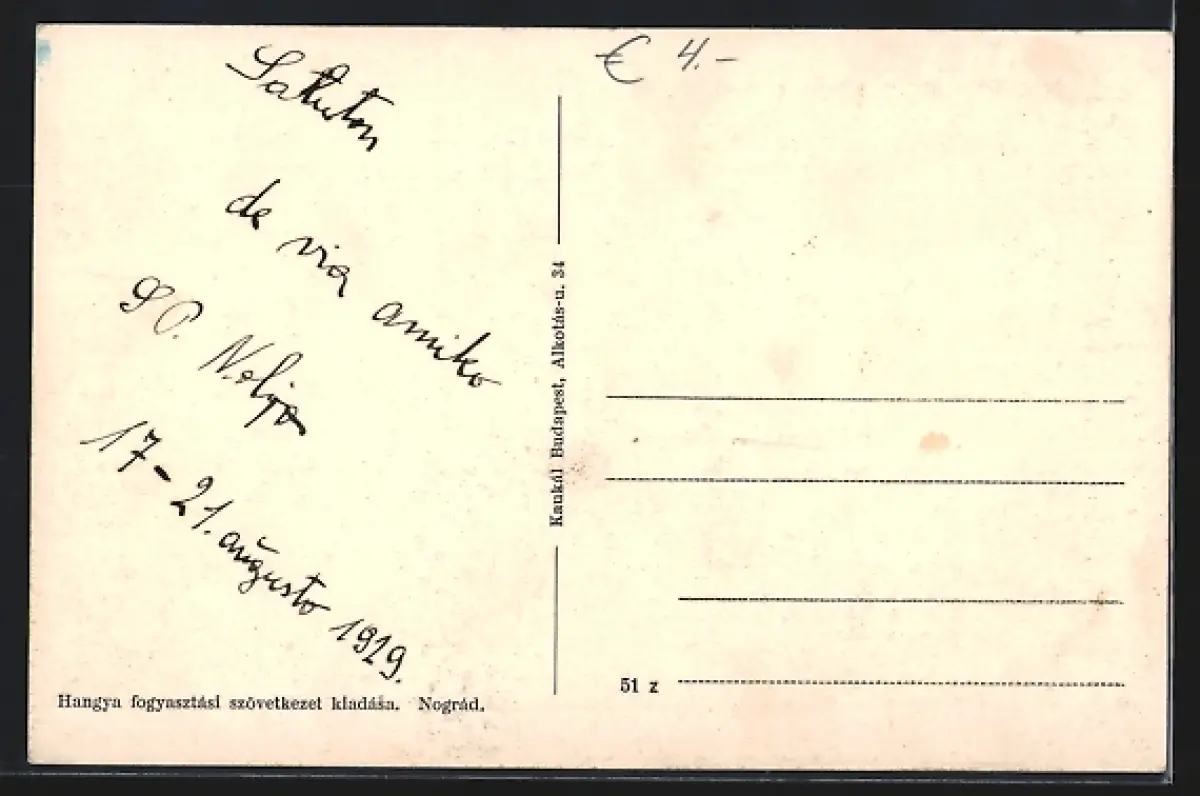 Saluton
de via amiko
17-21. aŭgusto 1929.
Hangya fogyasztási szövetkezet kiadása. Nográd.
Kaukál Budapest, Alkotás-u. 34
€ 4.-
51 z